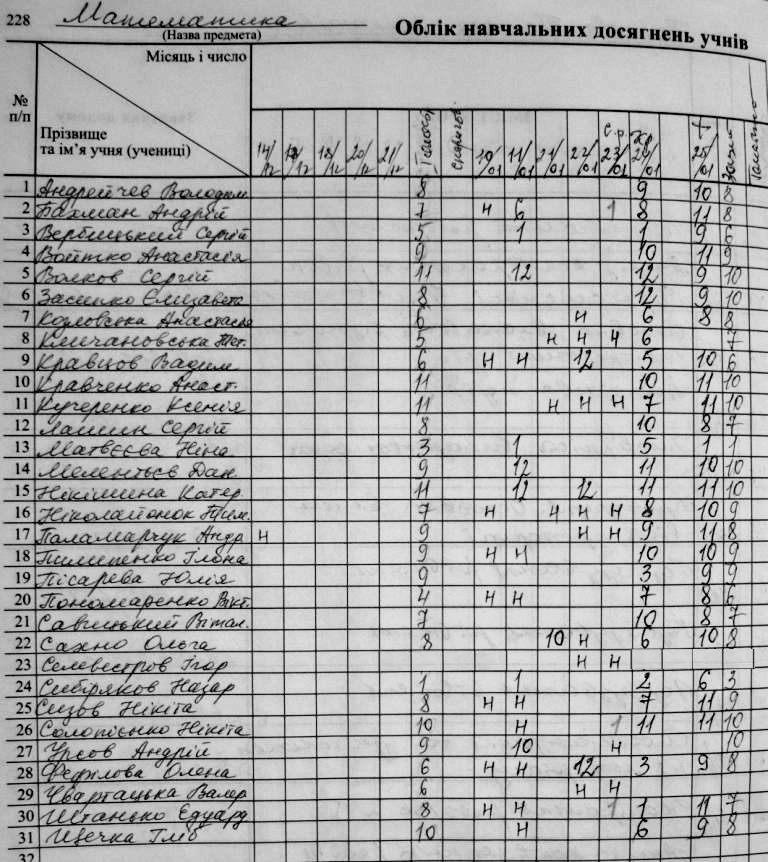 228 Математика
(Назва предмета)
Облік навчальних досягнень учнів
Місяць і число
№ п/п
Прізвище та ім’я учня (учениці)
14/12 18/12 20/12 21/12 І семестр 10/01 11/01 21/01 22/01 с.р. 23/01 кр 24/01 т 25/01
1 Андрейчев Володим. 8 9 10 8
2 Бахман Андрій 7 н 6 1 8 11 8
3 Вербицький Сергій 5 1 1 9 6
4 Войтко Анастасія 9 10 11 9
5 Волков Сергій 11 12 12 9 10
6 Засипко Єлизавета 8 12 9 10
7 Козловська Анастасія 6 н 6 8 8
8 5 н н н 6 7
9 Кравцов Вадим 6 н н 12 5 10 6
10 Кравченко Анаст. 11 10 11 10
11 Кучеренко Ксенія 11 н н н 7 11 10
12 Лашин Сергій 8 10 8 7
13 Матвєєва Ніна 3 1 5 1 1
14 Мелентьєв Дан. 9 12 11 10 10
15 Нікішина Катер. 11 12 12 11 11 10
16 Ніколайонок Тим. 7 н н н н 8 10 9
17 Паламарчук Андр. н 9 н н 9 11 8
18 Пилипенко Ілона 9 н н 10 10 9
19 Пісарева Юлія 9 3 9 9
20 Пономаренко Вікт. 4 н н 7 8 6
21 Савицький Вітал. 7 10 8 7
22 Сахно Ольга 8 10 н 6 10 8
23 Селевестров Ігор н н
24 Сибіряков Назар 1 1 2 6 3
25 Сизов Нікіта 8 н н 7 11 9
26 Солопієнко Нікіта 10 н 1 11 11 10
27 Урсов Андрій 9 10 н 10
28 Фефілова Олена 6 н н 12 3 9 8
29 Чвартацька Валер 6 н н
30 Штанько Едуард 8 н н 1 1 11 7
31 Щечка Гліб 10 н 6 9 8
32